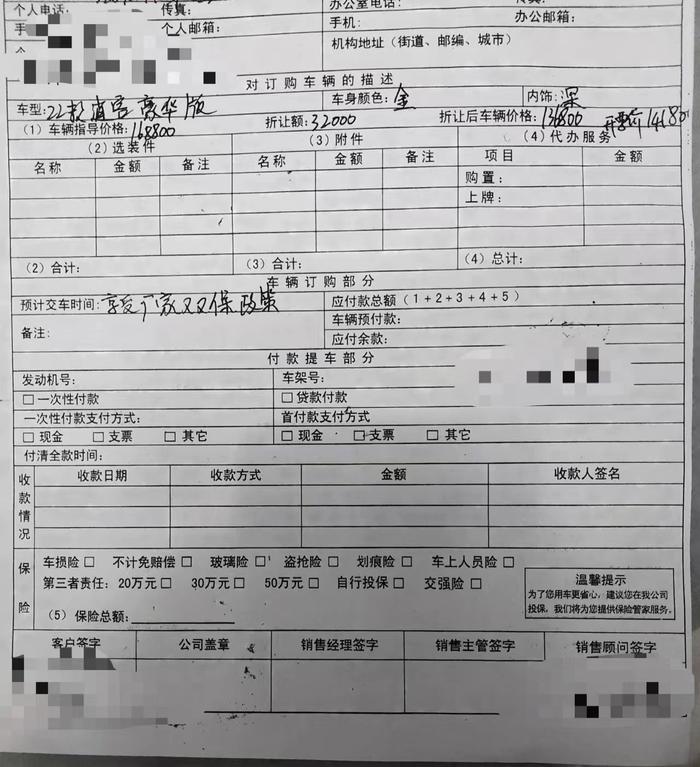 个人电话: 传真: 办公室电话:
手 个人邮箱: 手机: 办公邮箱:
机构地址（街道、邮编、城市）
对订购车辆的描述
车型: 22款逍客豪华版 车身颜色: 金 内饰: 深
（1）车辆指导价格: 168800 折让额: 32000 折让后车辆价格: 136800 开票价 14180
（2）选装件 （3）附件 （4）代办服务
名称 金额 备注 名称 金额 备注 项目 金额
购置:
上牌:
（2）合计: （3）合计: （4）总计:
车辆订购部分
预计交车时间: 享受厂家双保政策 应付款总额（1+2+3+4+5）
车辆预付款:
备注:
应付余款:
付款提车部分
发动机号: 车架号:
□ 一次性付款 □ 贷款付款
一次性付款支付方式: 首付款支付方式
□ 现金 □ 支票 □ 其它 □ 现金 □ 支票 □ 其它
付清全款时间:
收款情况 收款日期 收款方式 金额 收款人签名
保险
车损险 □ 不计免赔偿 □ 玻璃险 □ 盗抢险 □ 划痕险 □ 车上人员险 □
第三者责任: 20万元 □ 30万元 □ 50万元 □ 自行投保 □ 交强险 □
温馨提示
为了您用车更省心,建议您在我公司
投保,我们将为您提供保险管家服务。
（5）保险总额:
客户签字 公司盖章 销售经理签字 销售主管签字 销售顾问签字